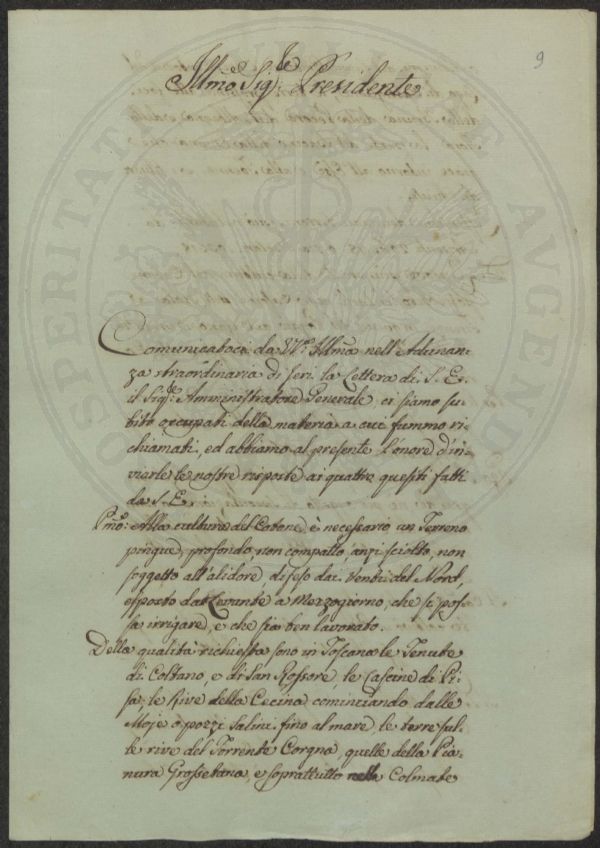 9
Illmo Sigr.e Presidente
Comunicatoci da VS. Illma nell'Adunan-
za straordinaria di Jeri la Lettera di S. E.
il Sigr.e Amministratore Generale, ci siamo su-
bito occupati della materia a cui fummo ri-
chiamati, ed abbiamo al presente l'onore d'in-
viarle le nostre risposte ai quattro quesiti fatti
da S. E.
Pmo: Alla cultura del Cotone è necessario un Terreno
pingue, profondo, non compatto, anzi sciolto, non
soggetto all'alidore, difeso dai Venti del Nord,
esposto da Levante a Mezzogiorno, che si pos-
sa irrigare, e che sia ben lavorato.
Della qualità richiesta sono in Toscana le Tenute
di Coltano, e di San Rossore, le Cascine di Pi-
sa, le Rive della Cecina cominciando dalle
Moje o pozzi Salini fino al mare, le terre sul-
le rive del Torrente Corgna, quelle della Pia-
nura Grossetana, e soprattutto nelle Colmate